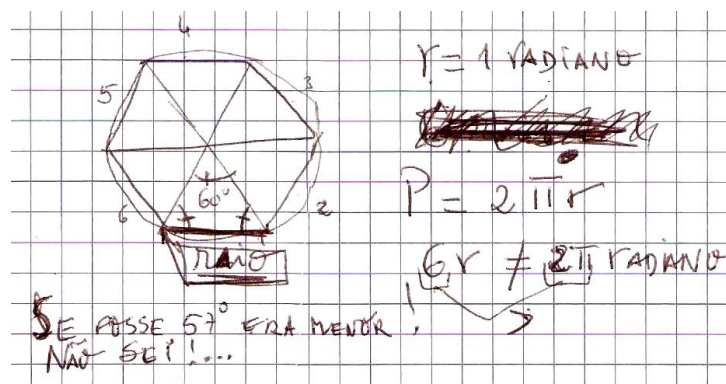 4
5
3
60°
6
2
RAIO
r = 1 RADIANO
P = 2πr
6r ≠ 2π RADIANO
SE FOSSE 57° ERA MENOR!
NÃO SEI!...